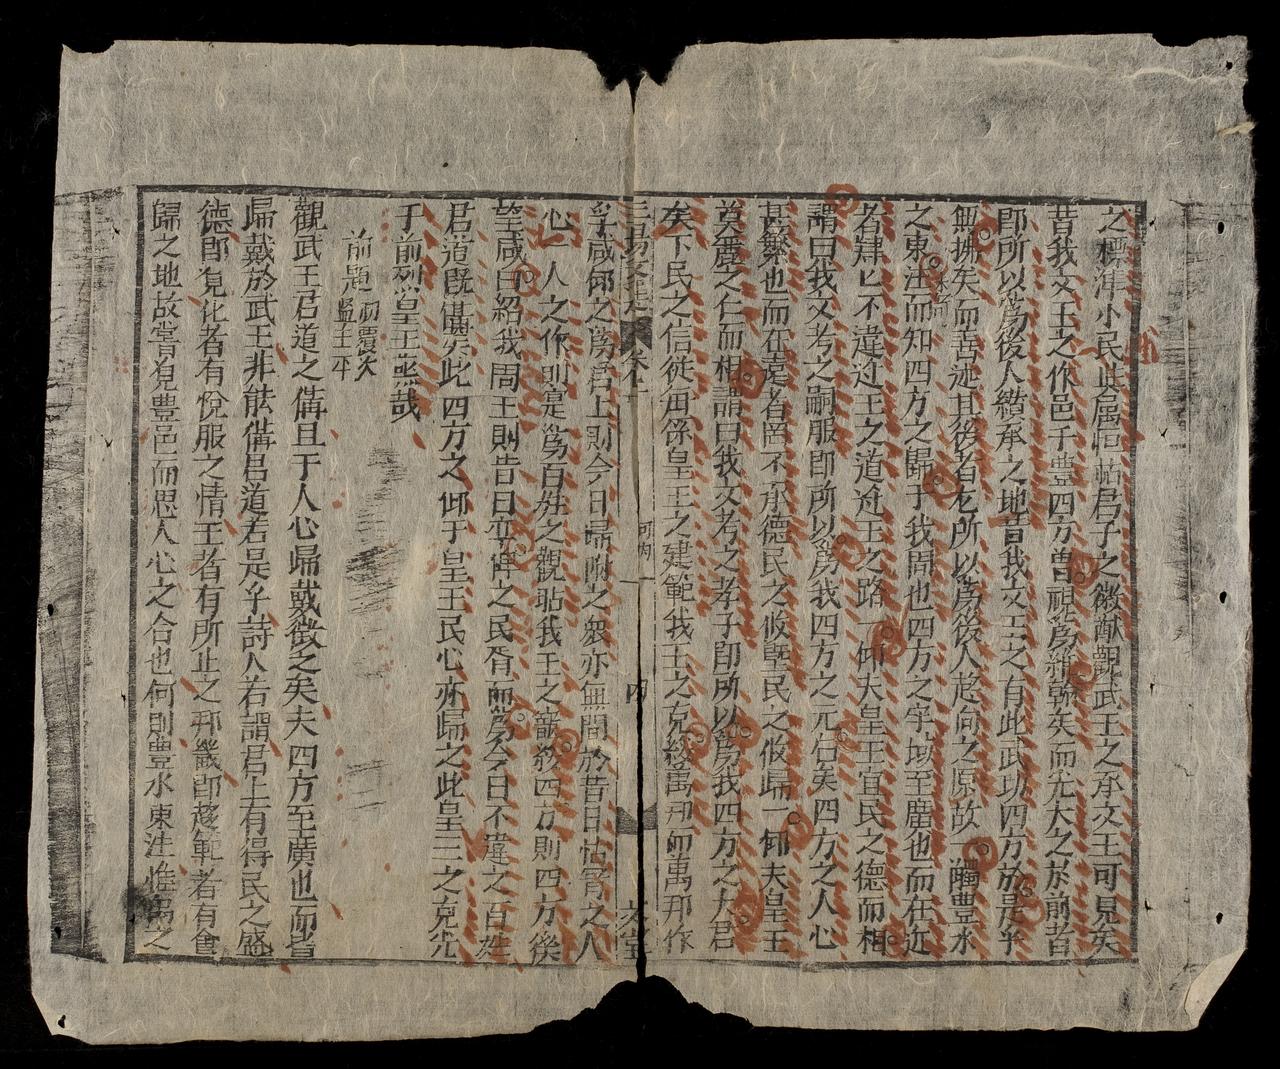 之標準小民其屬恒怙君子之徽猷觀武王之承文王可見矣
昔我文王之作邑于豐四方曾視為維翰矣而光大之於前者
即所以為後人纘承之地昔我文王之有此武功四方於是乎
無拂矣而善述其後者尤所以為後人趍向之原故 豐水
之東注而知四方之歸于我周也四方之宇域至廣也而在近
者肆亡不違過王之道過王之路一仰夫皇王宜民之德而相
謂曰我文考之嗣服即所以為我四方之元后矣四方之人心
甚繁也而在遠者罔不承德民之攸塈民之攸歸一仰夫皇王
莫 之仁而相謂曰我文考之孝子即所以為我四方之大君
矣下民之信從毌係皇王之建範我王之克綏萬邦而萬邦作
卷一 內 文堂
孚咸仰之為君上則今日歸附之衆亦無間於昔日怙冒之人
心一人之作則寔為百姓之觀瞻我王之 四方則四方徯
望咸曰紹我周王則昔日 之民胥而為今日不違之百姓
君道既備矣此四方之仰于皇王民心亦歸之此皇王之克光
于前烈皇王烝哉
前題
初覆次
監生平
觀武王君道之備且于人心歸戴徵之矣夫四方至廣也而皆
歸戴於武王非能備君道若是乎詩人若謂君上有得民之盛
德即覌化者有悅服之情王者有所止之邦畿即趍範者有會
歸之地故嘗覌豊邑而思人心之合也何則豊水東注惟禹之